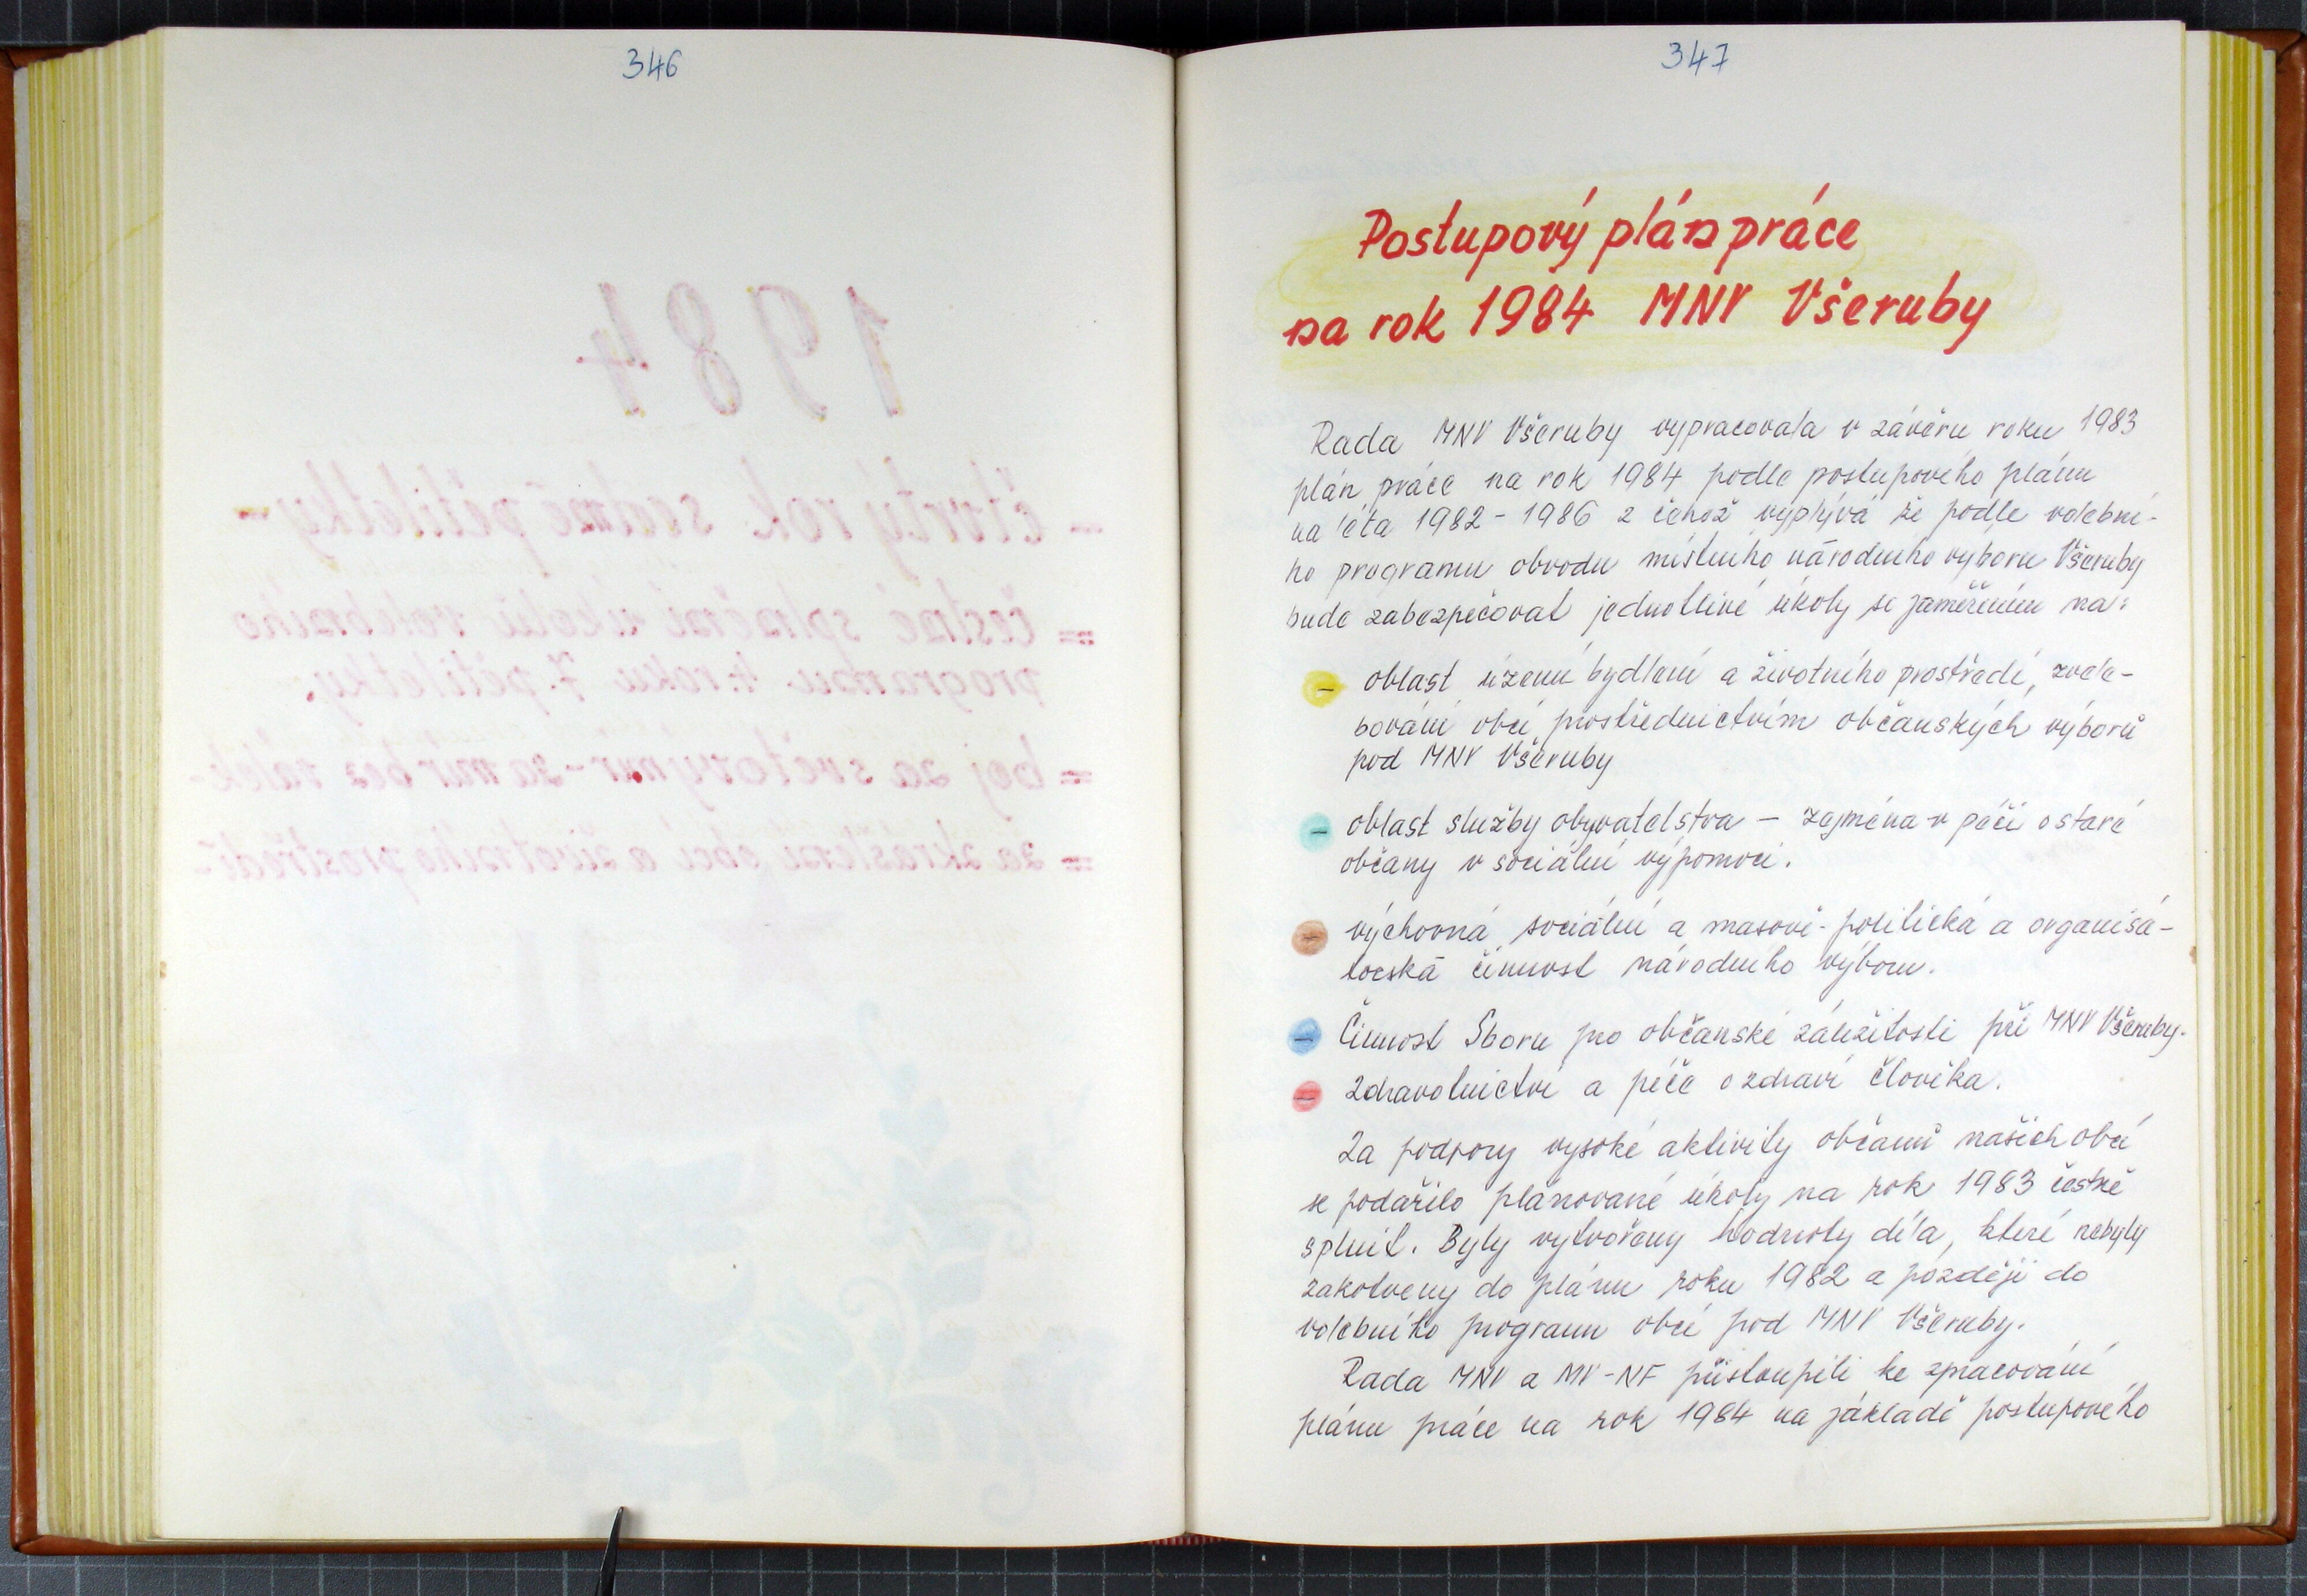 346
347
Postupový plán práce
na rok 1984 MNV Všeruby
Rada MNV Všeruby vypracovala v závěru roku 1983
plán práce na rok 1984 podle postupového plánu
na léta 1982 - 1986 z čehož vyplývá že podle volební-
ho programu obvodu místního národního výboru Všeruby
bude zabezpečovat jednotlivé úkoly se zaměřením na:
- oblast území bydlení a životního prostředí, zvele-
bování obcí prostřednictvím občanských výborů
pod MNV Všeruby
- oblast služby obyvatelstva - zejména v péči o staré
občany v sociální výpomoci.
- výchovná sociální a masově-politická a organisá-
torská činnost národního výboru.
- Činnost Sboru pro občanské záležitosti při MNV Všeruby.
- zdravotnictví a péče o zdraví člověka.
Za podpory vysoké aktivity občanů našich obcí
se podařilo plánované úkoly na rok 1983 čestně
splnit. Byly vytvořeny hodnoty díla, které nebyly
zakotveny do plánu roku 1982 a později do
volebního programu obcí pod MNV Všeruby.
Rada MNV a MV-NF přistoupili ke zpracování
plánu práce na rok 1984 na základě postupového